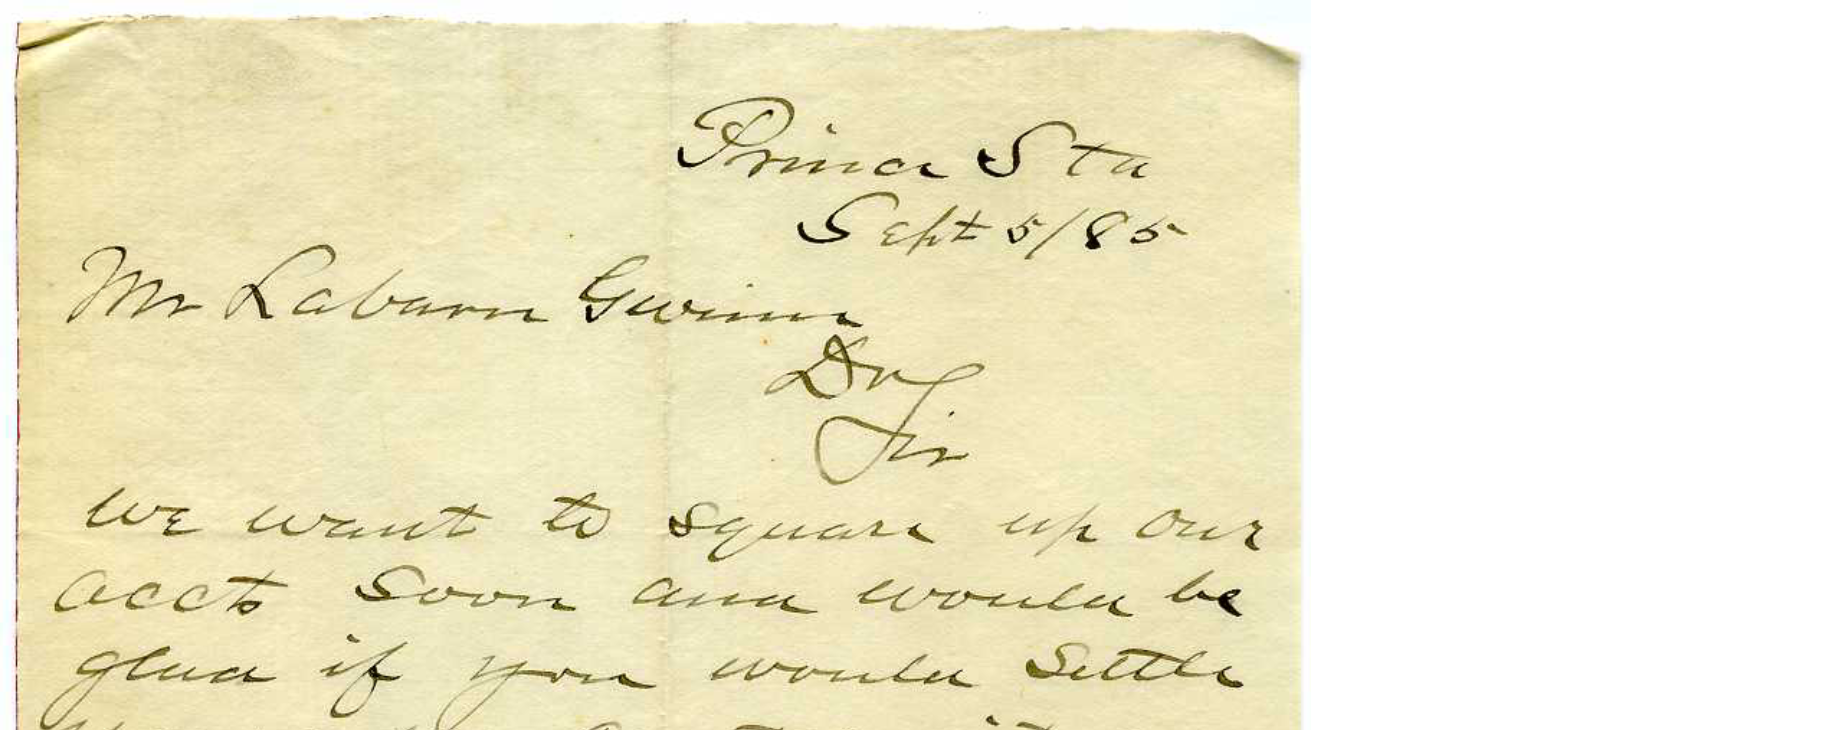 Prince Sta
Sept 5/85
Mr Laburn Gwinn
Dr
Sir
we want to square up our
accts soon and would be
glad if you would settle